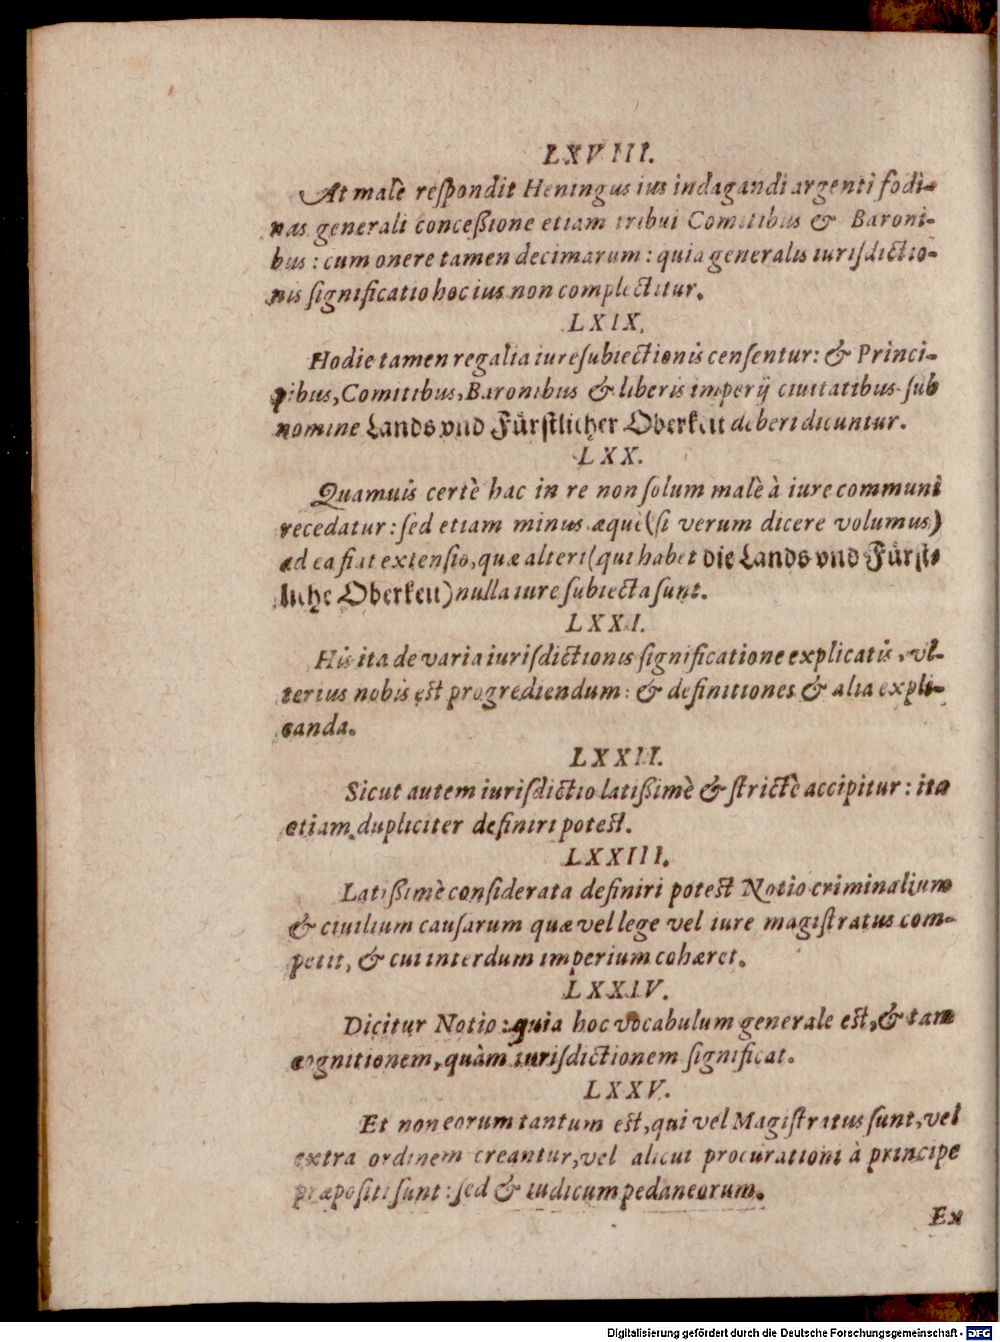 LXVIII.
At malè respondit Heningus ius indagandi argenti fodi-
nas generali conceßione etiam tribui Comitibus & Baroni-
bus: cum onere tamen decimarum: quia generalis iurisdictio-
nis significatio hoc ius non complectitur.
LXIX.
Hodie tamen regalia iure subiectionis censentur: & Princi-
pibus, Comitibus, Baronibus & liberis imperij ciuitatibus sub
nomine Lands vnd Fürstlicher Oberkeit deberi dicuntur.
LXX.
Quamuis certè hac in re non solum malè à iure communi
recedatur: sed etiam minus æquè (si verum dicere volumus)
ad ea fiat extensio, quæ alteri (qui habet die Lands vnd Fürst-
liche Oberkeit) nulla iure subiecta sunt.
LXXI.
His ita de varia iurisdictionis significatione explicatis, vl-
terius nobis est progrediendum: & definitiones & alia expli-
canda.
LXXII.
Sicut autem iurisdictio latißimè & strictè accipitur: ita
etiam dupliciter definiri potest.
LXXIII.
Latißimè considerata definiri potest Notio criminalium
& ciuilium causarum quæ vel lege vel iure magistratus com-
petit, & cui interdum imperium cohæret.
LXXIV.
Dicitur Notio: quia hoc vocabulum generale est, & tam
cognitionem, quàm iurisdictionem significat.
LXXV.
Et non eorum tantum est, qui vel Magistratus sunt, vel
extra ordinem creantur, vel alicui procurationi à principe
præpositi sunt: sed & iudicum pedaneorum.
Ex
Digitalisierung gefördert durch die Deutsche Forschungsgemeinschaft - DFG